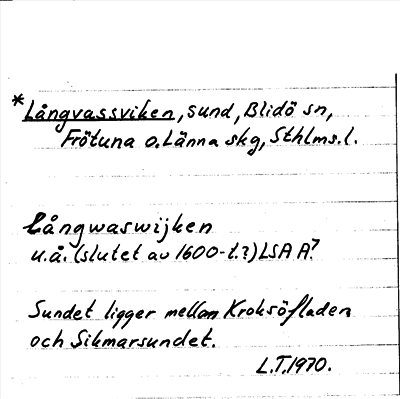 *Långvassviken, sund, Blidö sn,
Frötuna o. Länna skg, Sthlms. l.
Långwaswijken
u.å. (slutet av 1600-t.?) LSA A?7
Sundet ligger mellan Kroksöfladen
och Sikmarsundet.
L.T. 1970.